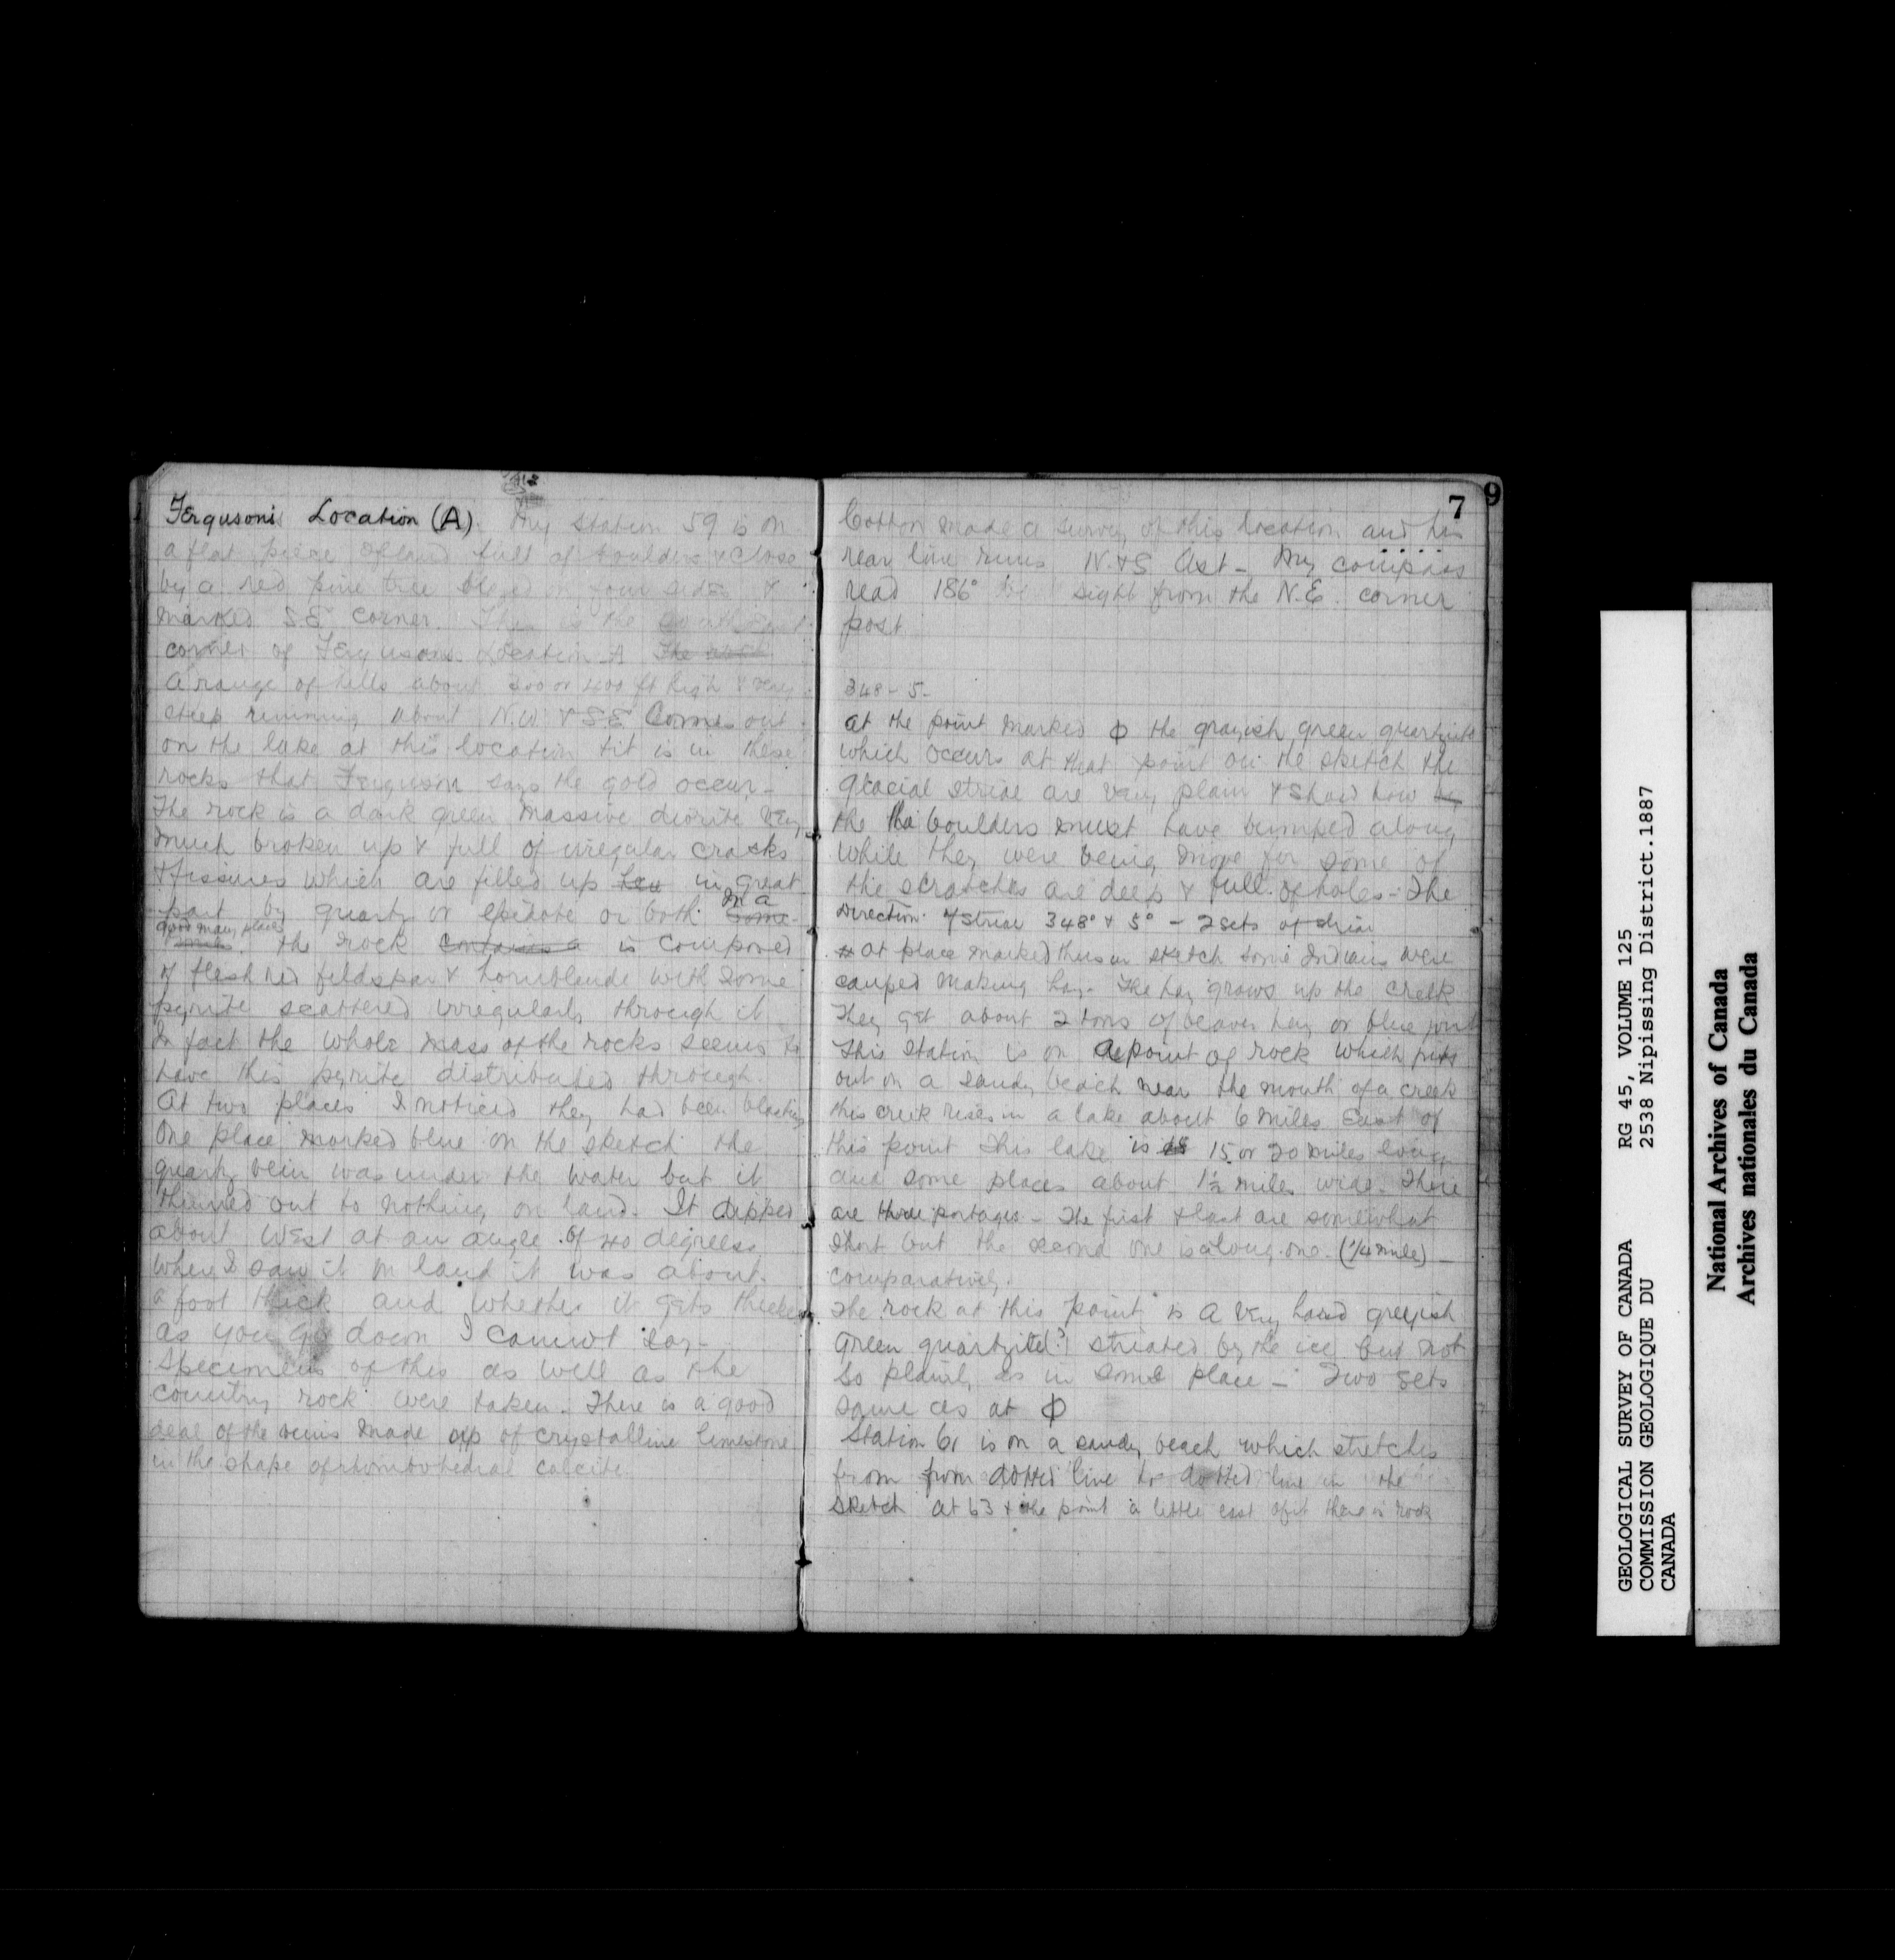 Fergusons Location (A). My station 59 is on
a flat piece of land full of boulders & close
by a red pine tree blazed on four sides &
marked S.E corner. This is the south East
corner of Fergusons Location A The
A range of hills about 300 or 400 ft high & very
steep running about N.W & S E comes out
on the lake at this location & it is in these
rocks that Ferguson says the gold occur-
The rock is a dark green massive diorite very
much broken up & full of irregular cracks
& fissures which are filled up in great
part by quartz or epidote or both. Some In a
good many places the rock contains a is composed
of flesh red feldspar & hornblende with some
pyrite scattered irregularly through it
In fact the whole mass of the rocks seems to
have this pyrite distributed through.
At two places I noticed they had been blasting
One place marked blue on the sketch the
quartz vein was under the water but it
thinned out to nothing on land. It dipped
about West at an angle of 40 degrees
where I saw it on land it was about
a foot thick and whether it gets thicker
as you go down I cannot say-
Specimens of this as well as the
country rock were taken. There is a good
deal of the veins made up of crystalline limestone
in the shape of rhombohedral calcite
7
9
Cotton made a survey of this location and his
rear line runs N. & S Ast - My compass
read 186° sight from the N.E. corner
post
348 - 5-
At the point marked ϕ the grayish green quartzite
which occurs at that point on the sketch the
glacial striae are very plain & show how
the the boulders must have bumped along
while they were being move for some of
the scratches are deep & full of holes - The
Direction of striae 348° & 5° - 2 sets of striae
At place marked thus on sketch some Indians were
camped making hay - The hay grows up the creek
They get about 2 tons of beaver hay or blue joint
This station is on a point of rock which juts
out on a sandy beach near the mouth of a creek
this creek rises in a lake about 6 miles East of
this point This lake is 15 or 20 miles long
and some places about 1½ miles wide. There
are three portages - The first & last are somewhat
short but the second one is a long one (¼ mile) -
comparatively.
The rock at this point is a very hard greyish
green quartzite(?) striated by the ice but not
so plainly as in some place - Two sets
same as at ϕ
Station 61 is on a sandy beach which stretches
from from dotted line to dotted line in the
sketch At 63 & the point a little east of it there is rock
GEOLOGICAL SURVEY OF CANADA RG 45, VOLUME 125
COMMISSION GEOLOGIQUE DU 2538 Nipissing District.1887
CANADA
National Archives of Canada
Archives nationales du Canada